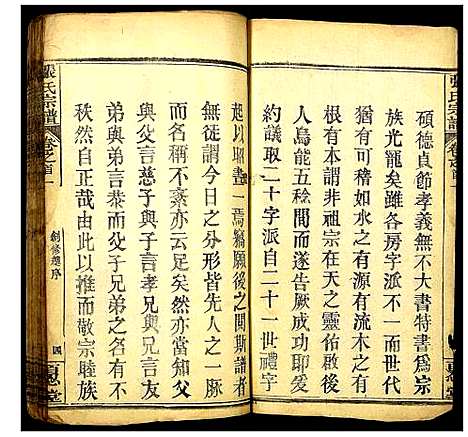 碩德貞節孝義無不大書特書為宗
族光寵矣雖各房字派不一而世代
猶有可稽如水之有源有流木之有
根有本謂非祖宗在天之靈佑啟後
人烏能五稔間而遂告厥成功歟
約議取二十字派自二十一世禮字
起以昭畫一焉竊願後之閱斯譜者
無徒謂今日之分形皆先人之一脉
而名稱不紊亦云足矣然亦當知父
與父言慈子與子言孝兄與兄言友
弟與弟言恭而父子兄弟之間亦皆
秩然自正哉由此以推而敬宗睦族
張氏宗譜
卷之首一
創修譜序
四
張氏宗譜
卷之首一